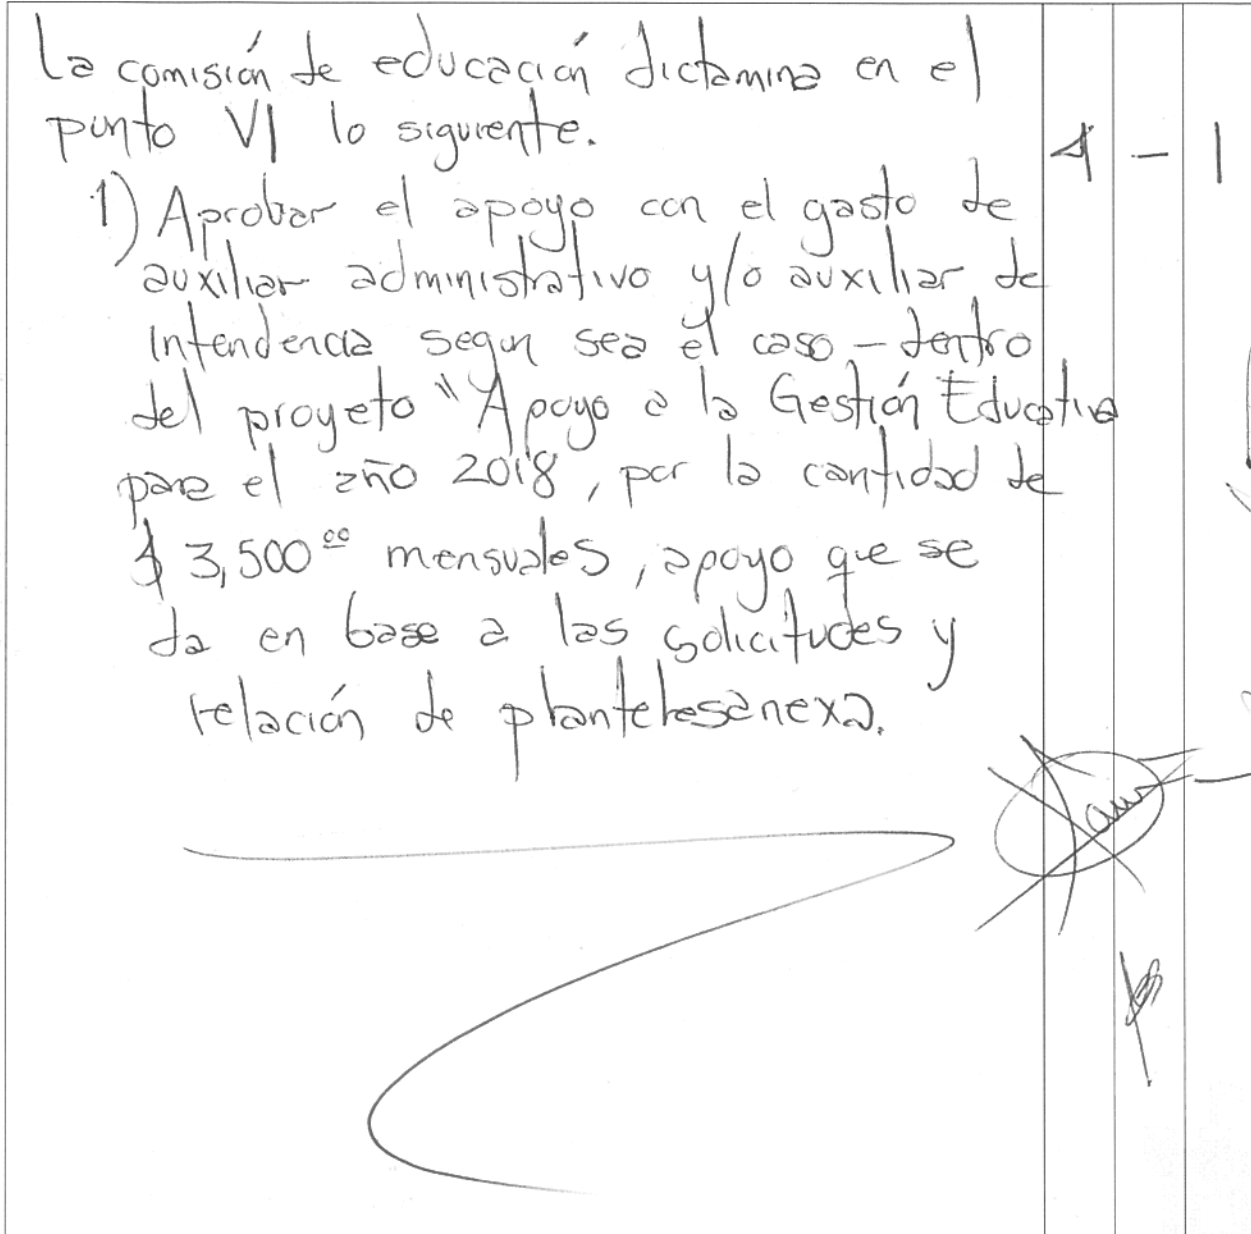 La comisión de educación dictamina en el
punto VI lo siguiente.
4 - 1
1) Aprobar el apoyo con el gasto de
auxiliar administrativo y/o auxiliar de
intendencia segun sea el caso - dentro
del proyeto "Apoyo a la Gestión Educativa
para el año 2018, por la cantidad de
$ 3,500.00 mensuales, apoyo que se
da en base a las solicitudes y
relación de plantelesanexa.